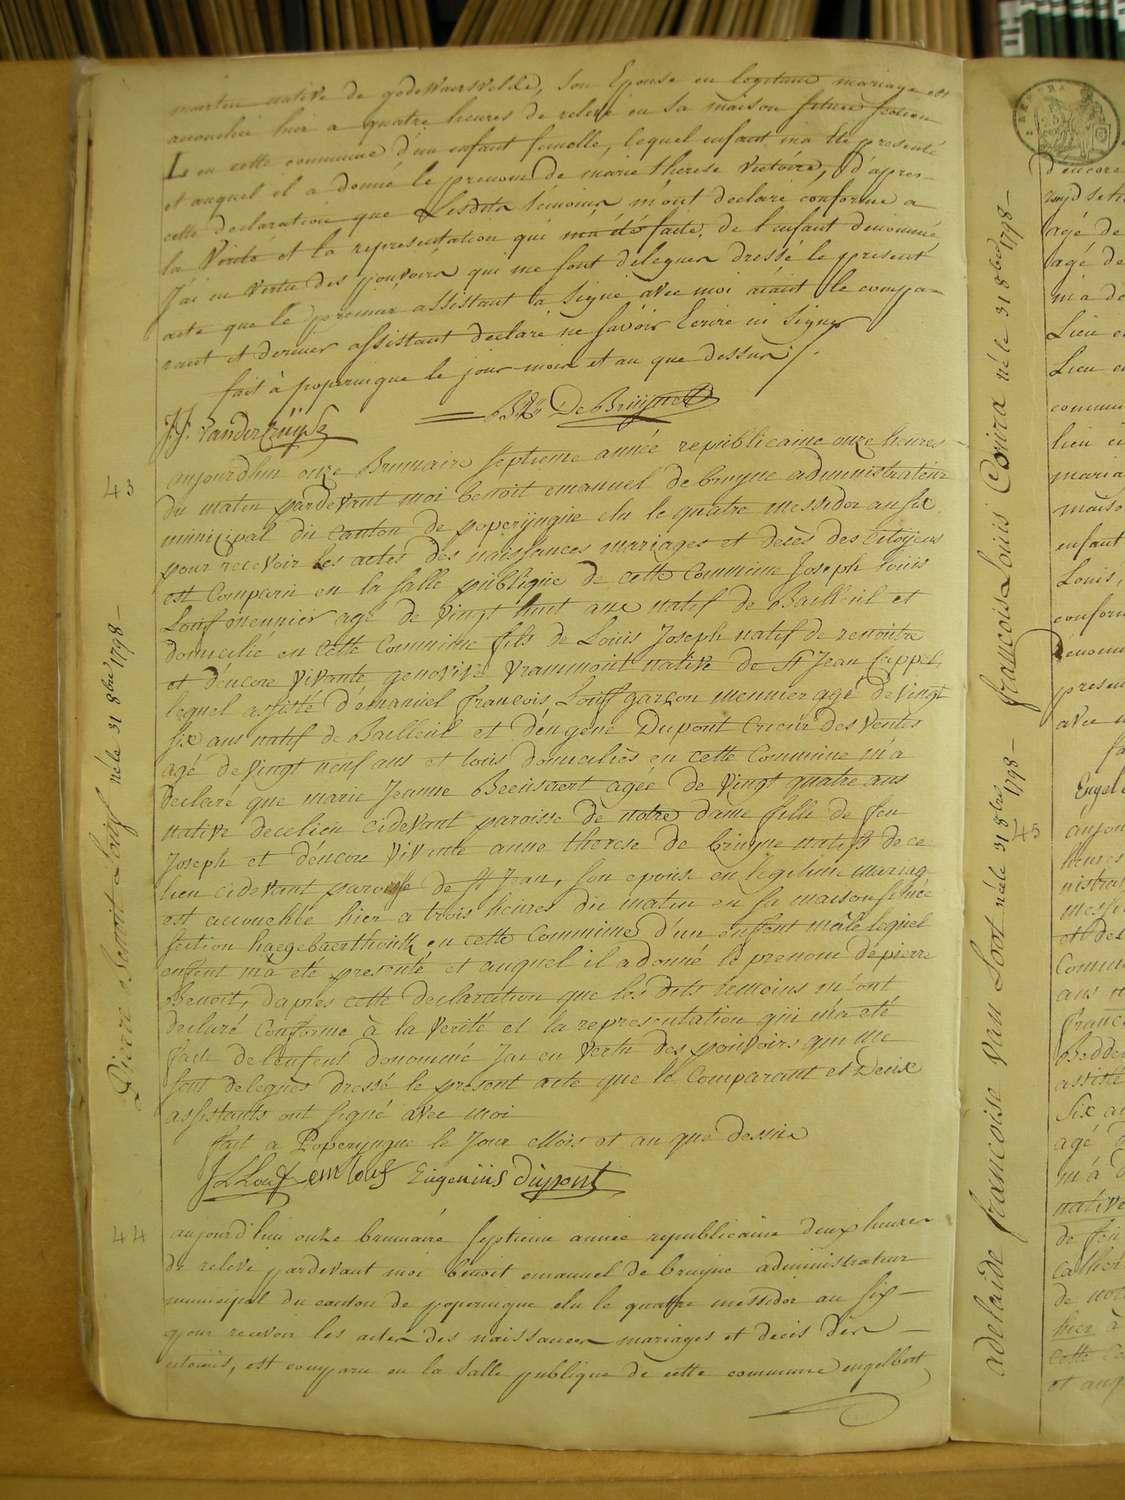 martin native de godewaersvelde, son Epouse en legitime mariage est
accouchée hier a quatre heures de relevé en sa maison
en cette commune d'un enfant femelle, lequel enfant m'a été presenté
et auquel il a donné le prenom de marie therese victoire, d'apres
cette declaration que Lesdits témoins m'ont declaré conforme a
la Verité et la representation qui m'a été faite, de l'enfant denommé
J'ai en vertu des pouvoirs qui me sont deleguer dressé le present
acte que le premier assistant a Signé avec moi aiant le compa-
rant et dernier assistant declaré ne savoir Ecrire ni Signer
fait à poperingue le jour mois et an que dessus /.
J.J. VanderCruÿsse DeBruyne
43
aujourdhui onze Brumaire septieme année republicaine onze heures
du matin pardevant moi benoit emanuel de bruyne administrateur
municipal du canton de poperyngue elu le quatre messidor an six
pour recevoir les actes des naissances mariages et decès des citoÿens
est comparu en la salle publique de cette Commune Joseph Louis
Louf meunier agé de vingt huit ans natif de Bailleul et
domicilié en cette Commune fils de Louis Joseph natif de
et d'encore vivante genevive vrammout native de St Jean Cappel,
lequel assisté d'emanuel françois Louf garçon meunier agé de vingt
six ans natif de Bailleul et d'eugene Dupont Crieur des ventes
agé de vingt neuf ans et tous domiciliés en cette Commune m'a
declaré que marie Jeanne Beeusaert agée de vingt quatre ans
native de ce lieu cidevant paroisse de notre dame fille de feu
Joseph et d'encore vivante anne therese de bruyne native de ce
lieu cidevant paroisse de St Jean, son epouse en legitime mariag
est accouchée hier a trois heures du matin en sa maison
section haegebaerthouck en cette Commune d'un enfant mâle lequel
enfant m'a été presenté et auquel il a donné le prenom de pierre
Benoit, daprès cette declaration que les dits temoins m'ont
declaré Conforme à la verité et la representation qui m'a été
faite de l'enfent denommé Jai en vertu des pouvoirs qui me
sont delegués dressé le present acte que le Comparant et Deux
assistants ont signé avec moi
fait a Poperyngue le Jour Mois et an que dessus
JLLouf em louf Eugeniüs Düpont
44
aujourd'hui onze brumaire septieme année republicaine deux heures
de relevé pardevant moi benoit emanuel de bruyne administrateur
municipal du canton de poperingue elu le quatre messidor an six
pour recevoir les actes des naissances mariages et décès des
citoiens, est comparu en la salle publique de cette commune engelbert
Pierre Benoit Louf né le 31 8bre 1798
françois Louis Coüra né le 31 8bre 1798
adelaïde francoise van Loot née le 31 8bre 1798
45
d'encore
agé de
agé de
m'a de
Lieu
Lieu
commu
lieu
maria
maiso
enfant
Louis,
confor
denom
presen
avec
fa
Engel
aujou
heures
nistra
messi
et de
Commu
ans
franc
assisté
six a
agé
m'a
native
de feu
cather
de not
hier à
cette co
et auq